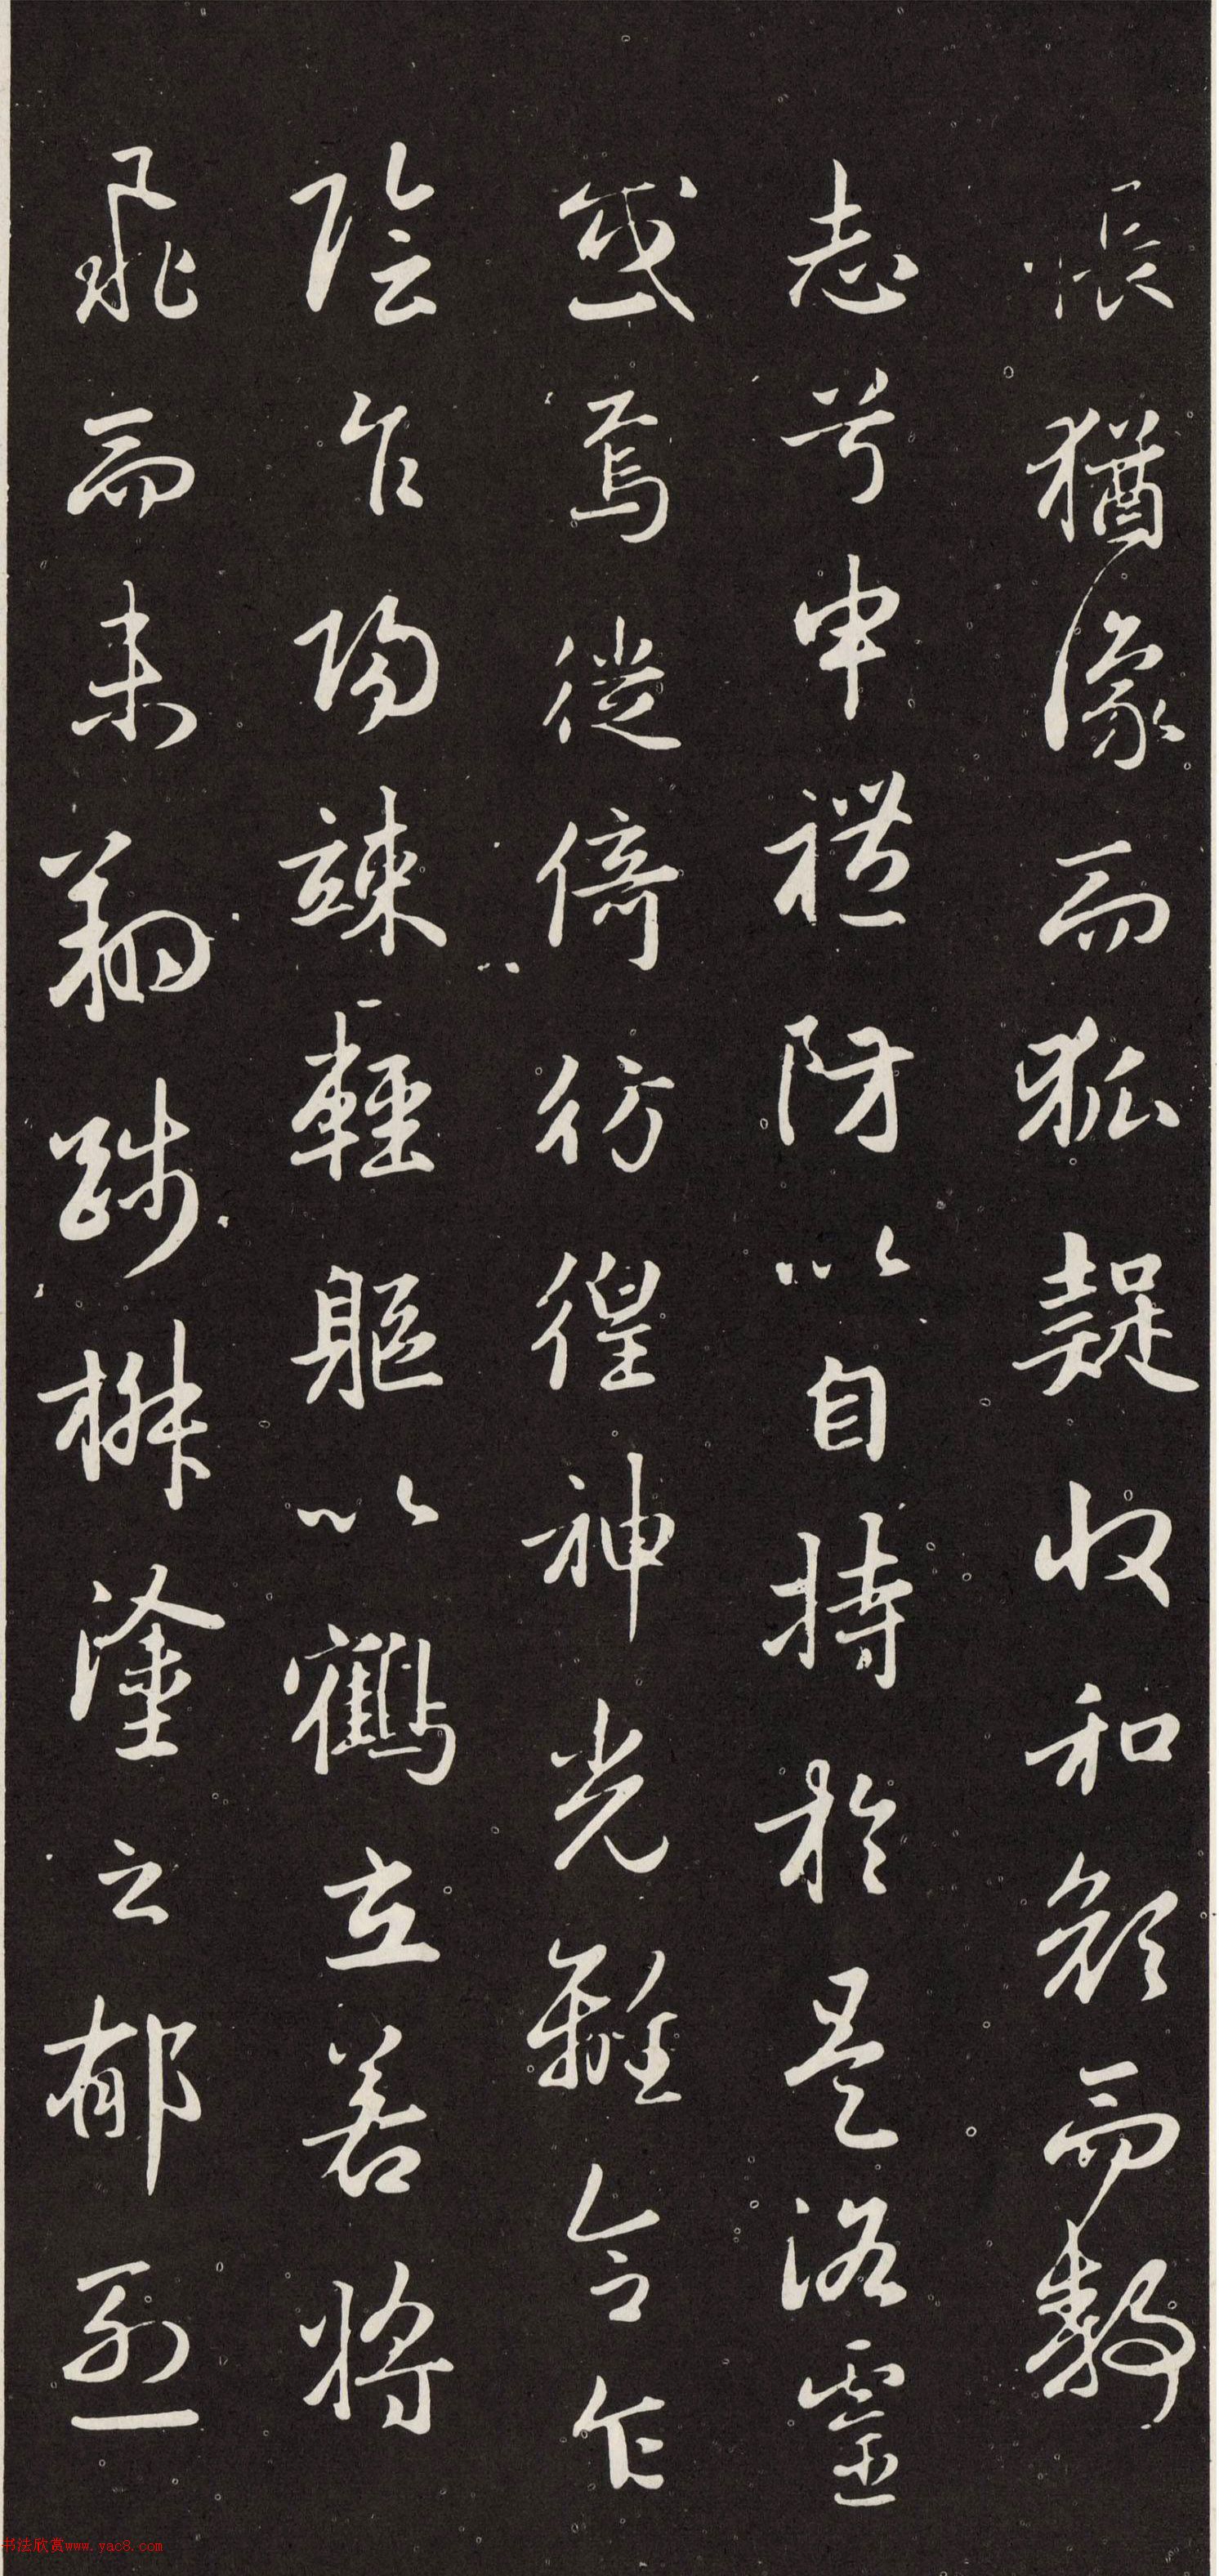 悵猶豫而狐疑收和顏而靜
志兮申禮防以自持於是洛靈
感焉徙倚彷徨神光離合乍
陰乍陽竦輕軀以鶴立若將
飛而未翔踐椒塗之郁烈
书法欣赏www.yac8.com